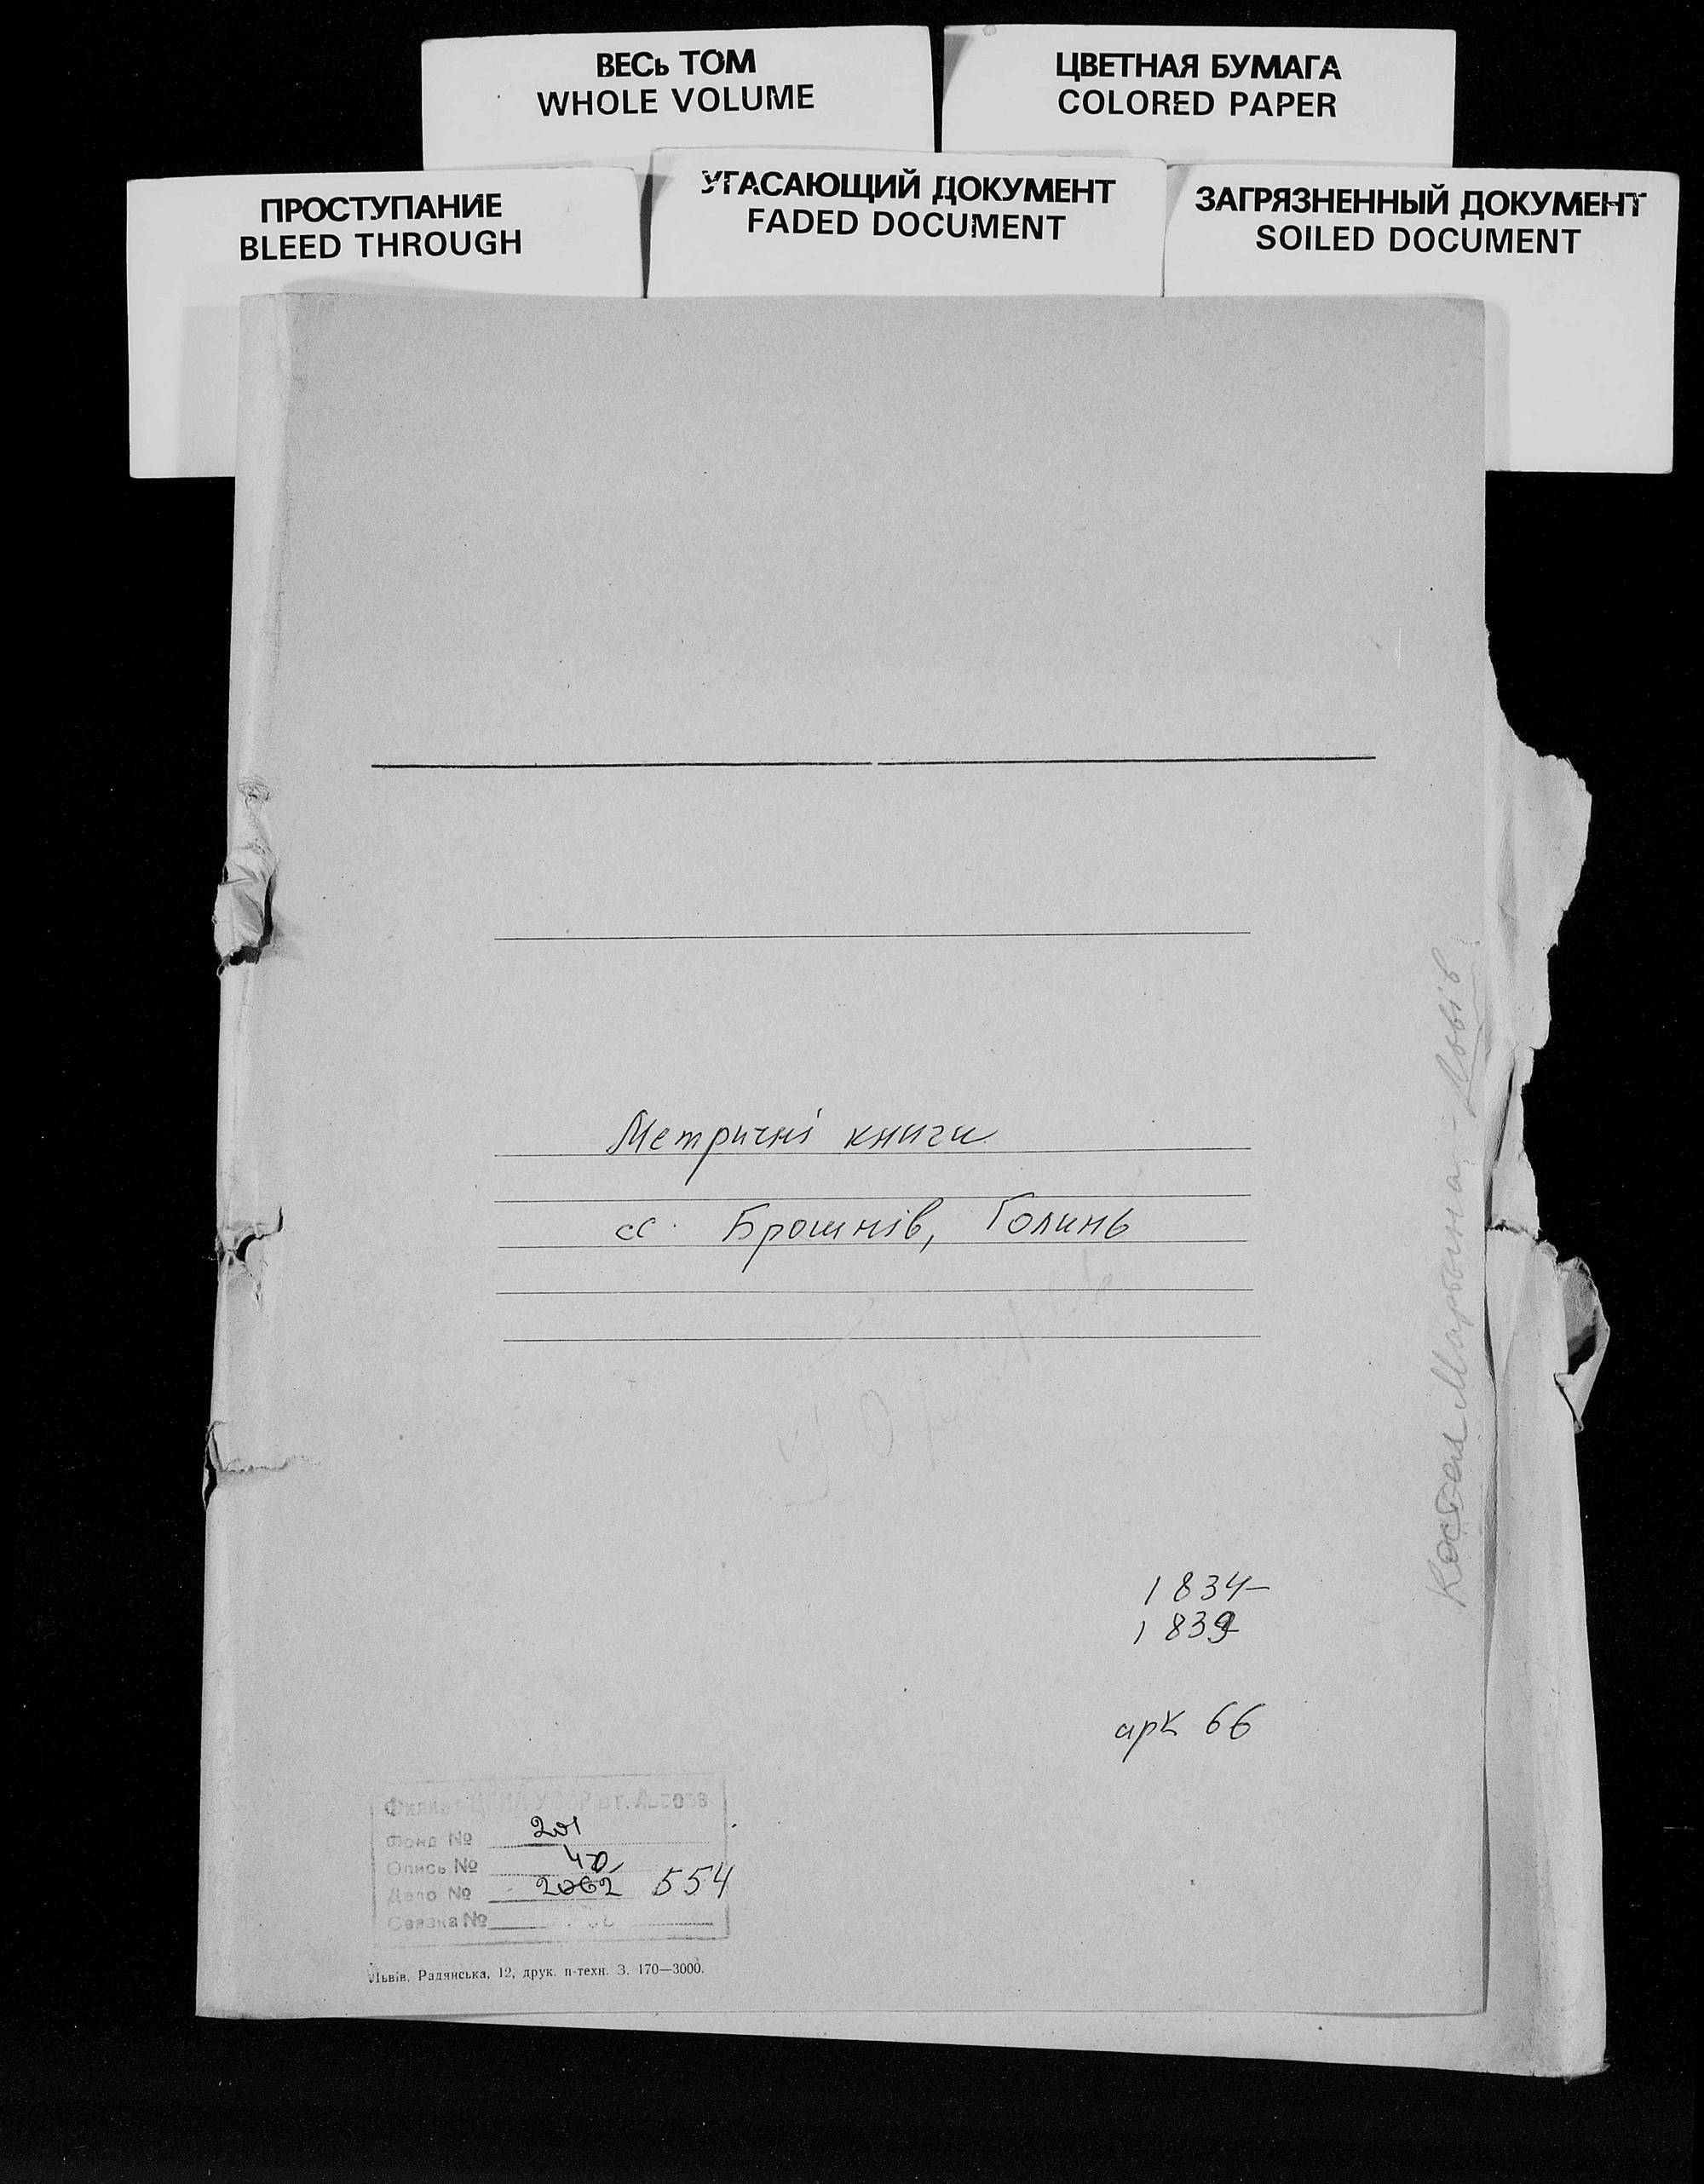 ВЕСЬ ТОМ
WHOLE VOLUME
ЦВЕТНАЯ БУМАГА
COLORED PAPER
ПРОСТУПАНИЕ
BLEED THROUGH
УГАСАЮЩИЙ ДОКУМЕНТ
FADED DOCUMENT
ЗАГРЯЗНЕННЫЙ ДОКУМЕНТ
SOILED DOCUMENT
Метричні книги
сс. Брошнів, Голинь
Костел Мартына - Львів
1834-
1839
арк 66
Филиал ЦГИА УССР в г. Львове
Фонд № 201
Опись № 4а
Дело № 2062 554
Связка №
Львів, Радянська, 12, друк. п-техн. З. 170—3000.